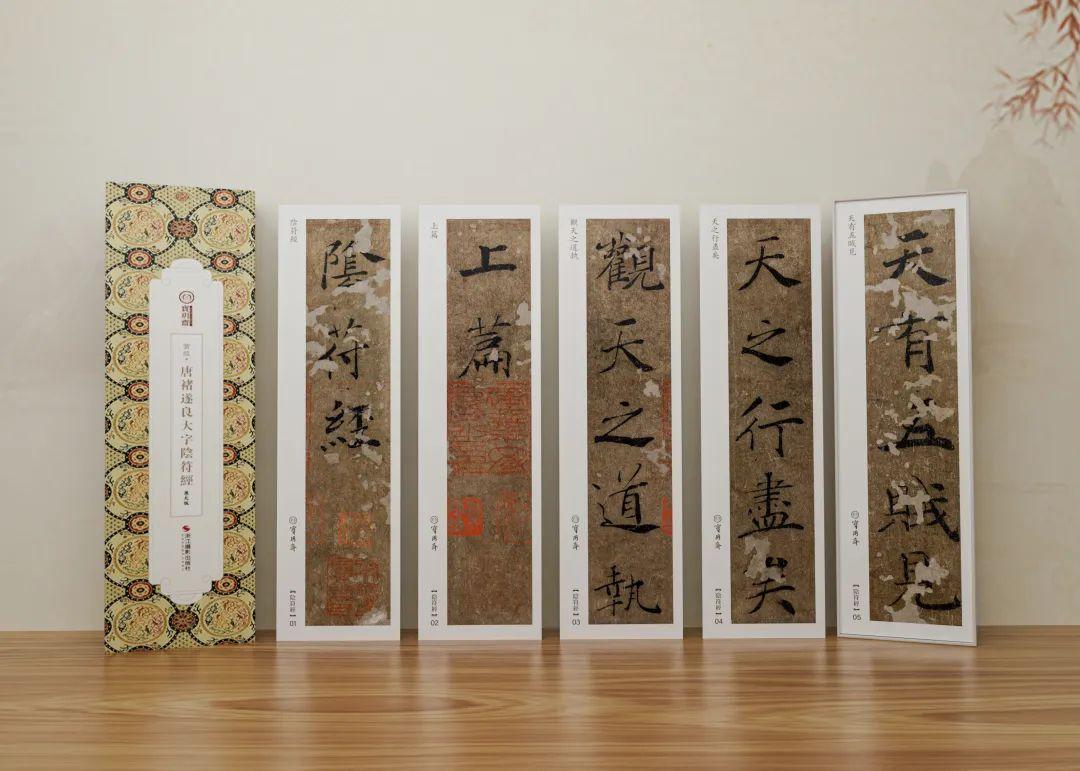 寶玥齋
寶臨·
唐褚遂良大字陰符經
原大版
浙江攝影出版社
陰符經
陰符經
寶玥齋
【陰符經】
01
上篇
上篇
寶玥齋
【陰符經】
02
觀天之道執
觀天之道執
寶玥齋
【陰符經】
03
天之行盡矣
天之行盡矣
寶玥齋
【陰符經】
04
天有五賊見
天有五賊見
寶玥齋
【陰符經】
05